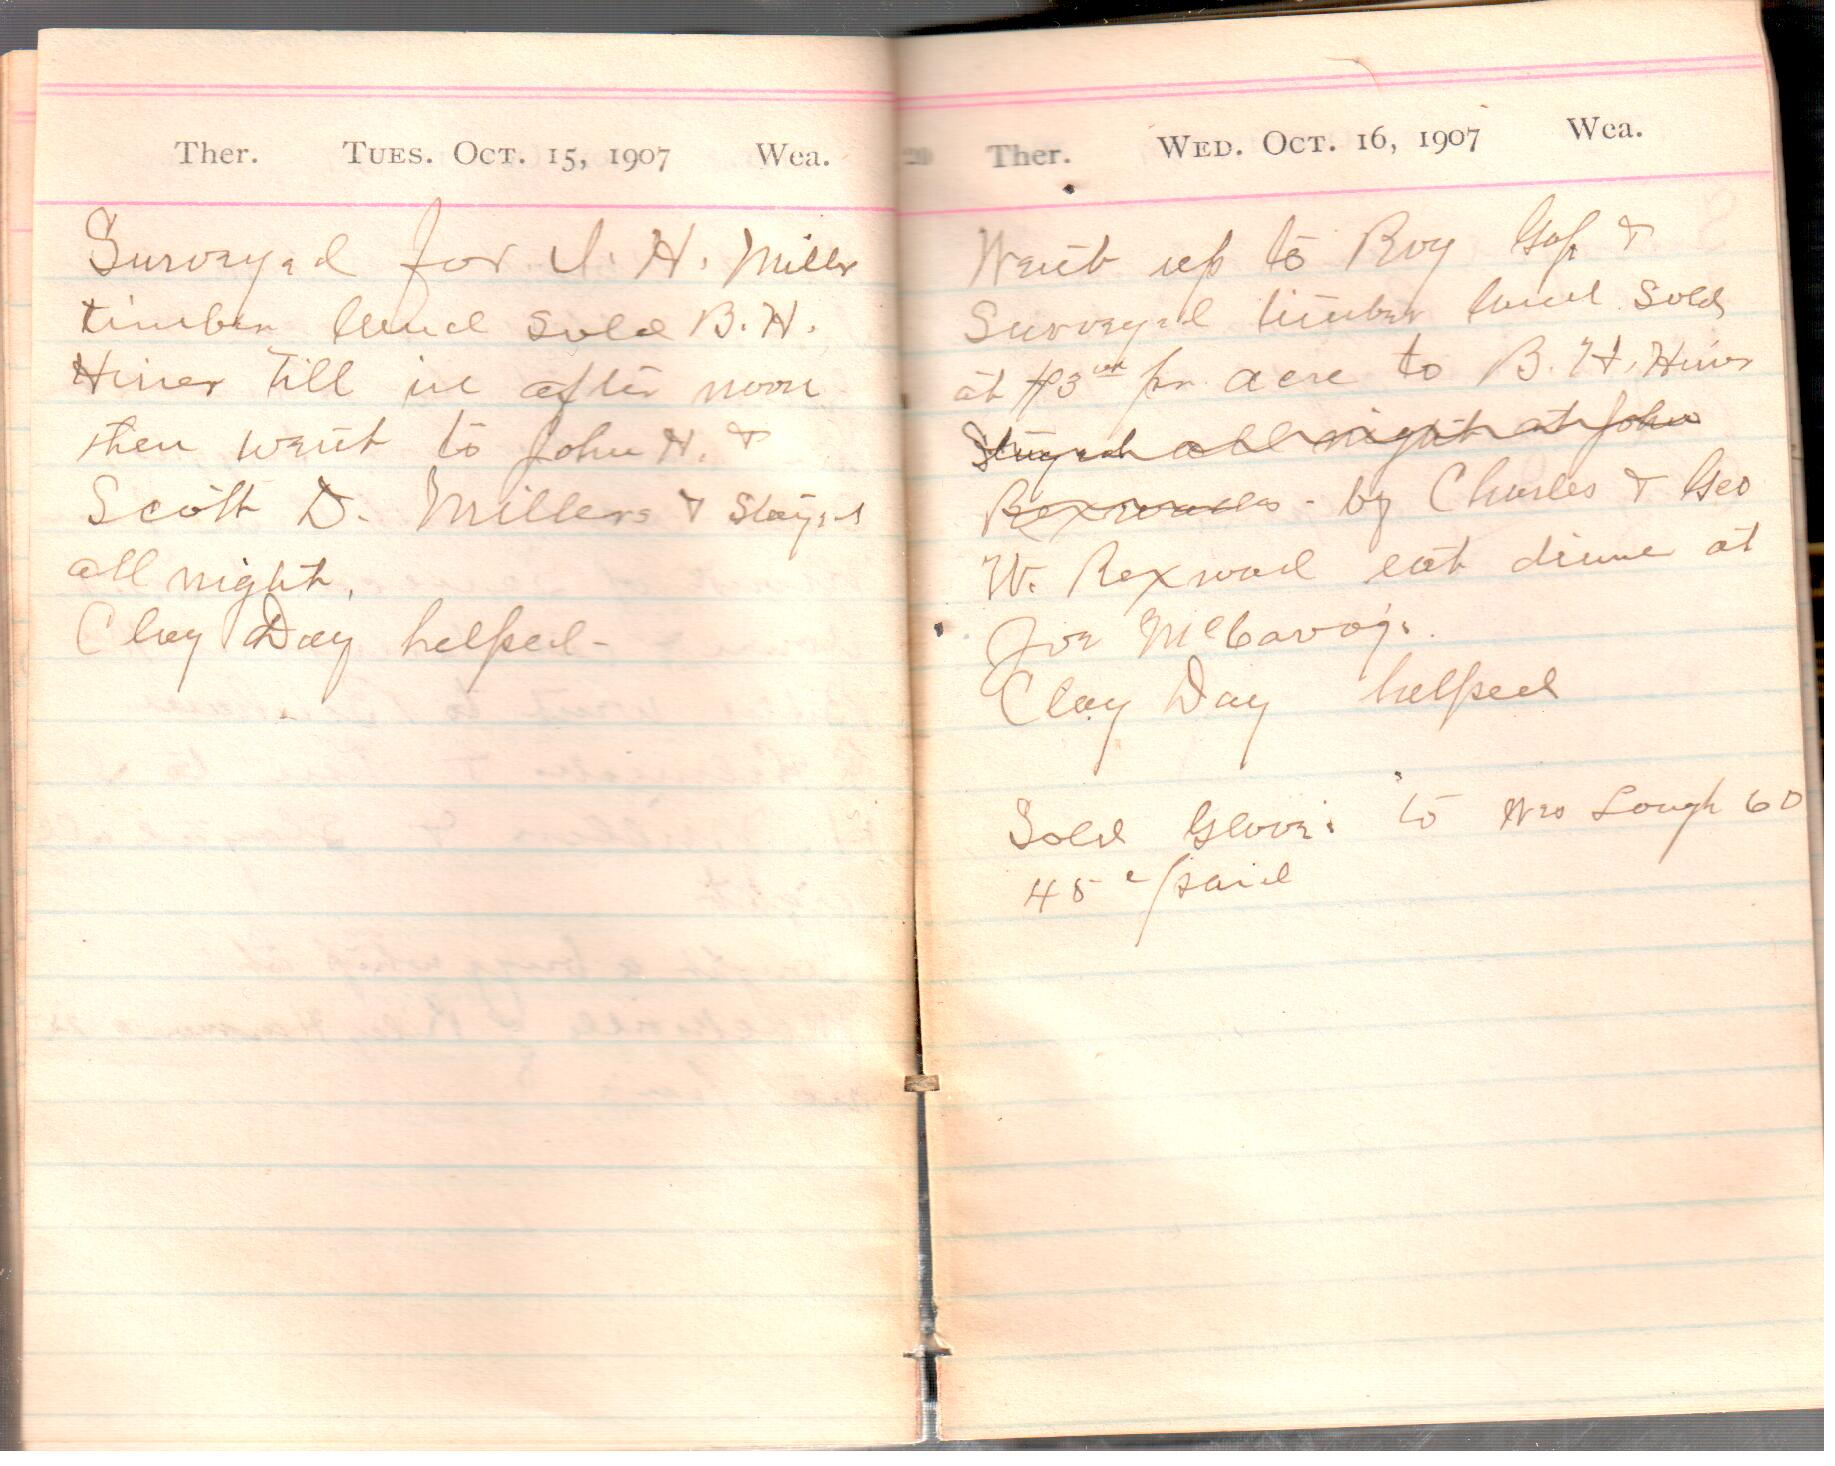 Ther. Tues. Oct. 15, 1907 Wea.
Surveyed for I. H. Miller
timber land sold B. H.
Hiner till in after noon
then went to John H. &
Scott D. Millers & stayed
all night.
Clay Day helped-
Ther. Wed. Oct. 16, 1907 Wea.
Went up to Roy Gap &
Surveyed timber land sold
at $3 per acre to B. H. Hiner
Stayed all night at John
Rexroads - by Charles & Geo
W. Rexroad eat dinner at
Joe McCavoy's.
Clay Day helped
Sold Glover to Lough 60
45 c/paid